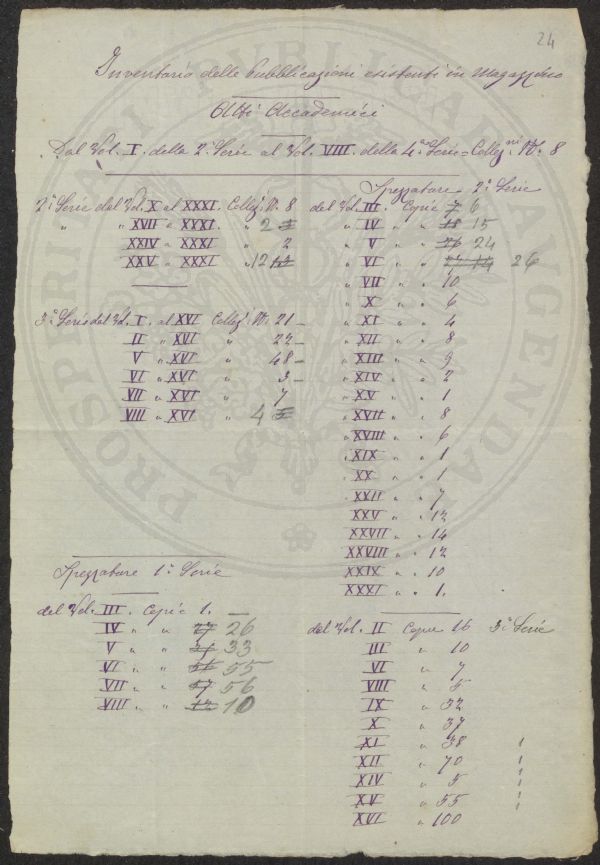 24
Inventario delle Pubblicazioni esistenti in Magazzino
Atti Accademici
Dal Vol. I. della 2ª Serie al Vol. VIII. della 4ª Serie = Collezni N. 8
2ª Serie dal Vol. X al XXXI. Collezi N. 8
" " XVII " XXXI. " 2
XXIV " XXXI " 2
XXV " XXXI " 12
3ª Serie dal Vol. I. al XVI Collezi N. 21 -
II " XVI " 22 -
V " XVI " 48 -
VI " XVI " 3 -
VII " XVI " 7
VIII " XVI " 4
Spezzature 1ª Serie
del Vol. III. Copie 1. -
IV " " 27 26
V " " 33
VI " " 56 55
VII " " 57 56
VIII " " 12 10
Spezzature 2ª Serie
del Vol. III. Copie 7 6
" IV " " 18 15
" V " " 26 24
" VI " " 14 26
" VII " " 10
" X " " 6
" XI " " 4
" XII " " 8
" XIII " " 9
" XIV " " 2
" XV " " 1
" XVII " " 8
" XVIII " " 6
" XIX " " 1
" XX " " 1
" XXII " " 7
" XXV " " 12
" XXVII " " 14
" XXVIII " " 12
" XXIX " " 10
" XXXI " " 1.
del Vol. II Copie 16 3ª Serie
III " 10
VI " 7
VIII " 5
IX " 52
X " 37
XI " 38
XII " 70
XIV " 5
XV " 55
XVI " 100
PROSPERITATI PUBLICAE AUGENDAE